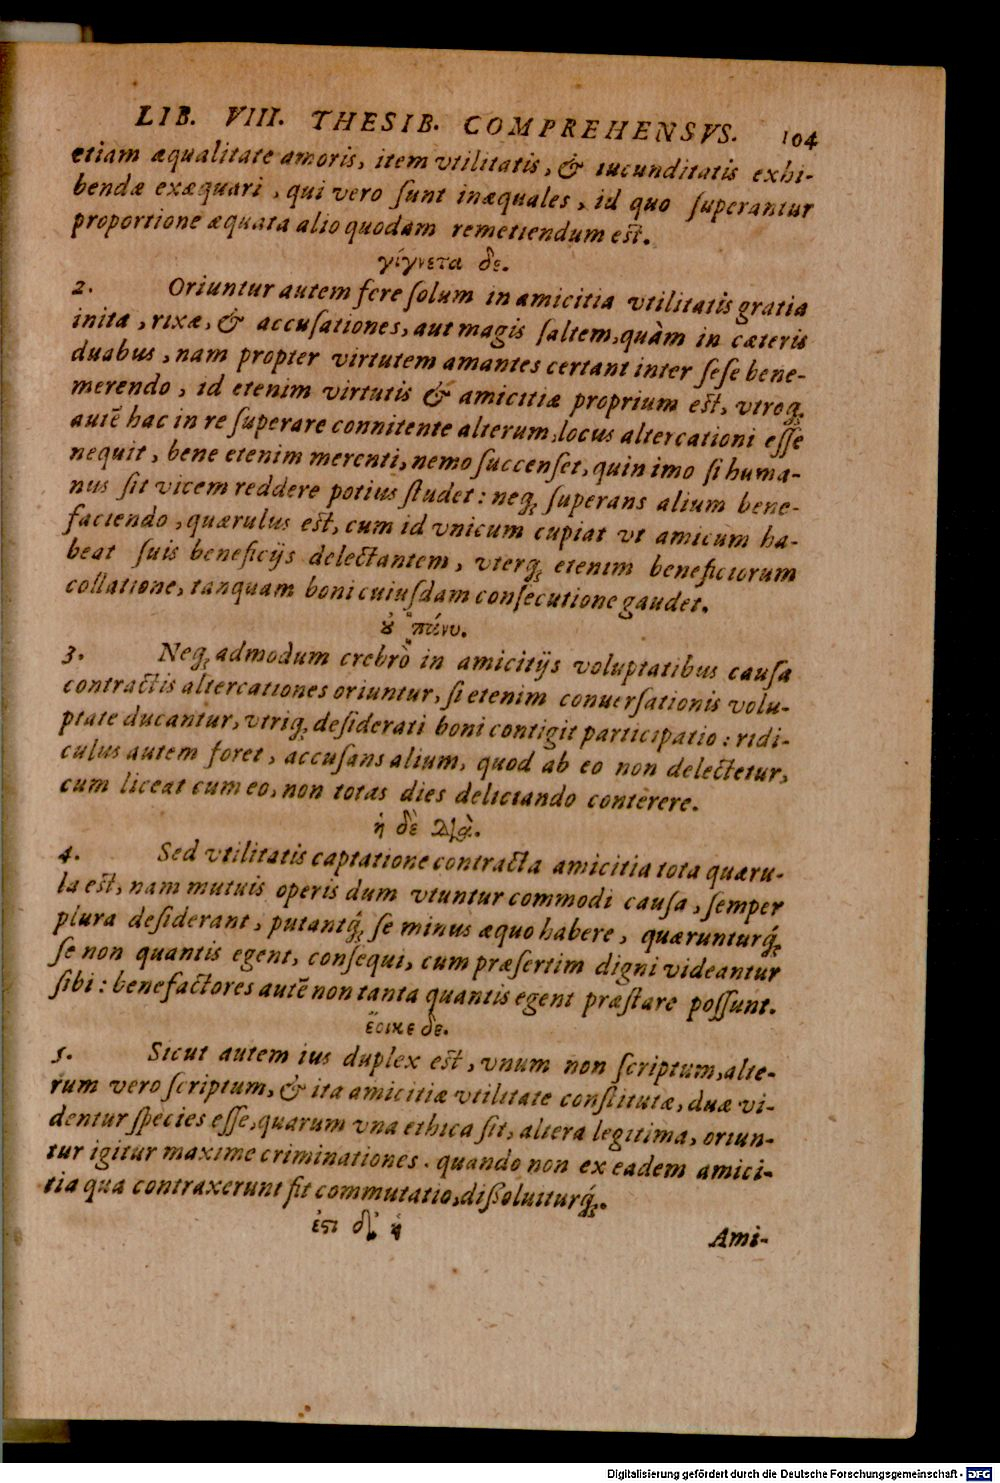 LIB. VIII. THESIB. COMPREHENSVS. 104
etiam æqualitate amoris, item vtilitatis, & iucunditatis exhi-
bendæ exæquari, qui vero ſunt inæquales, id quo ſuperantur
proportione æquata alio quodam remetiendum eſt.
γίγνεται δε.
2. Oriuntur autem fere ſolum in amicitia vtilitatis gratia
inita, rixæ, & accuſationes, aut magis ſaltem, quàm in cæteris
duabus, nam propter virtutem amantes certant inter ſeſe bene-
merendo, id etenim virtutis & amicitiæ proprium eſt, vtroq;
autē hac in re ſuperare connitente alterum, locus altercationi eſſe
nequit, bene etenim merenti, nemo ſuccenſet, quin imo ſi huma-
nus ſit vicem reddere potius ſtudet: neq; ſuperans alium bene-
faciendo, quærulus eſt, cum id vnicum cupiat vt amicum ha-
beat ſuis beneficijs delectantem, vterq; etenim beneficiorum
collatione, tanquam boni cuiuſdam conſecutione gaudet.
ȣ̓ πάνυ.
3. Neq; admodum crebrò in amicitijs voluptatibus cauſa
contractis altercationes oriuntur, ſi etenim conuerſationis volu-
ptate ducantur, vtriq; deſiderati boni contigit participatio: ridi-
culus autem foret, accuſans alium, quod ab eo non delectetur,
cum liceat cum eo, non totas dies delictando conterere.
ἡ δὲ διὰ.
4. Sed vtilitatis captatione contracta amicitia tota quæru-
la eſt, nam mutuis operis dum vtuntur commodi cauſa, ſemper
plura deſiderant, putantq́; ſe minus æquo habere, quærunturq́;
ſe non quantis egent, conſequi, cum præſertim digni videantur
ſibi: benefactores autē non tanta quantis egent præſtare poſſunt.
ἔοικε δε.
5. Sicut autem ius duplex eſt, vnum non ſcriptum, alte-
rum vero ſcriptum, & ita amicitiæ vtilitate conſtitutæ, duæ vi-
dentur ſpecies eſſe, quarum vna ethica ſit, altera legitima, oriun-
tur igitur maxime criminationes. quando non ex eadem amici-
tia qua contraxerunt fit commutatio, dißoluiturq́;.
ἐστι δ' ἡ
Ami-
Digitalisierung gefördert durch die Deutsche Forschungsgemeinschaft - DFG